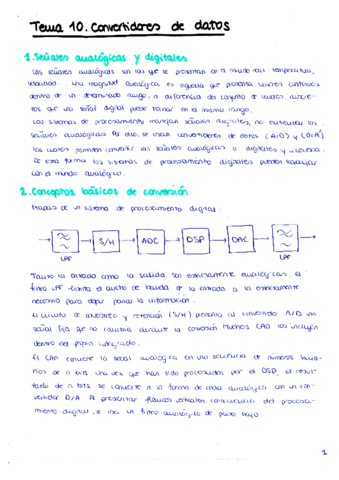 Tema 10. Convertidores de datos
1. Señales analógicas y digitales
Las señales analógicas son las que se presentan en el mundo real: temperatura,
velocidad... Una magnitud analógica es aquella que presenta valores continuos
dentro de un determinado rango, a diferencia del conjunto de valores discre-
tos que una señal digital puede tomar en el mismo rango.
Los sistemas de procesamiento manejan señales digitales, no entienden las
señales analógicas. Por eso, se usan convertidores de datos (A/D) y (D/A)
los cuales permiten convertir las señales analógicas a digitales y viceversa.
De esta forma los sistemas de procesamiento digitales pueden trabajar
con el mundo analógico.
2. Conceptos básicos de conversión
Etapas de un sistema de procesamiento digital:
LPF S/H ADC DSP DAC LPF
Tanto la entrada como la salida son estrictamente analógicas. El
filtro LPF limita el ancho de banda de la entrada a la estrictamente
necesario para dejar pasar la información.
El circuito de muestreo y retención (S/H) presenta al convertidor A/D una
señal fija que no cambia durante la conversión. Muchos CAD los incluyen
dentro del propio integrado.
El CAD convierte la señal analógica en una secuencia de números bina-
rios de n bits. Una vez que han sido procesados por el DSP, el resul-
tado de n bits se convierte a la forma de onda analógica con un con-
vertidor D/A. Al presentar flancos verticales, consecuencia del procesa-
miento digital, se usa un filtro analógico de paso bajo.
1